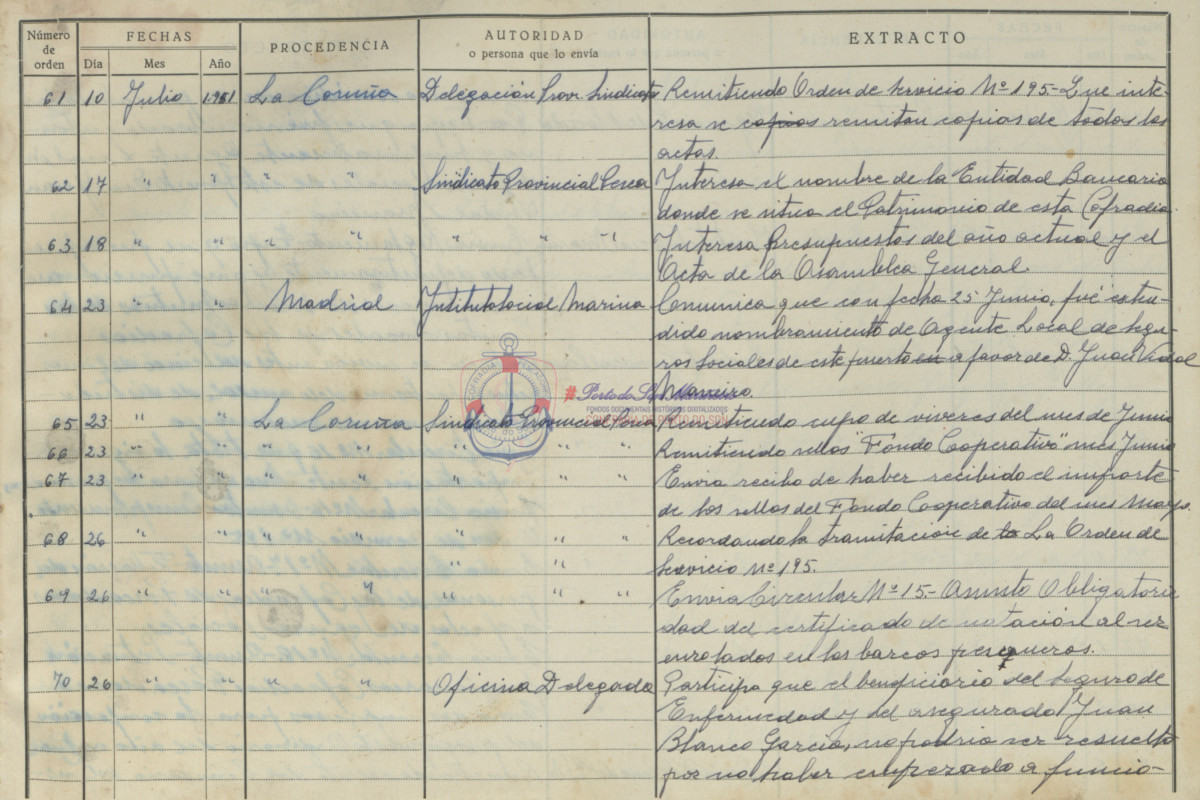 Número de orden FECHAS PROCEDENCIA AUTORIDAD o persona que lo envía EXTRACTO
Día Mes Año
61 10 Julio 1.951 La Coruña Delegación Prov. Sindicatos Remitiendo Orden de Servicio Nº 195.- Que inte-
resa se copias remitan copias de todas las
actas.
62 17 " " " " Sindicato Provincial Pesca Interesa el nombre de la Entidad Bancaria
donde se situa el Patrimonio de esta Cofradia
63 18 " " " " " " " Interesa Presupuestos del año actual y el
Acta de la Asamblea General.
64 23 " " Madrid Intituto Social Marina Comunica que con fecha 25 Junio, fué exten-
dido nombramiento de Agente Local de Segu-
ros Sociales de este puerto en a favor de D. Juan Vidal
Maneiro.
65 23 " " La Coruña Sindicato Provincial Pesca Remitiendo cupo de viveres del mes de Junio
66 23 " " " " " " " Remitiendo sellos "Fondo Cooperativo" mes Junio
67 23 " " " " " " " Envia recibo de haber recibido el importe
de los sellos del Fondo Cooperativo del mes Mayo.
68 26 " " " " " " " Recordando la tramitación de la La Orden de
Servicio nº 195.
69 26 " " " " " " " Envia Circular Nº 15.- Asunto Obligatorie
dad del certificado de natación al ser
enrolados en los barcos pesqueros.
70 26 " " " " Oficina Delegada Participa que el beneficiario del Seguro de
Enfermedad y del asegurado Juan
Blanco Garcia, no podria ser resuelto
por no haber empezado a funcio-
COFRADIA
#Porto do Son
FONDOS DOCUMENTAIS HISTÓRICOS DIGITALIZADOS
CONFRARÍA DE PORTO DO SON